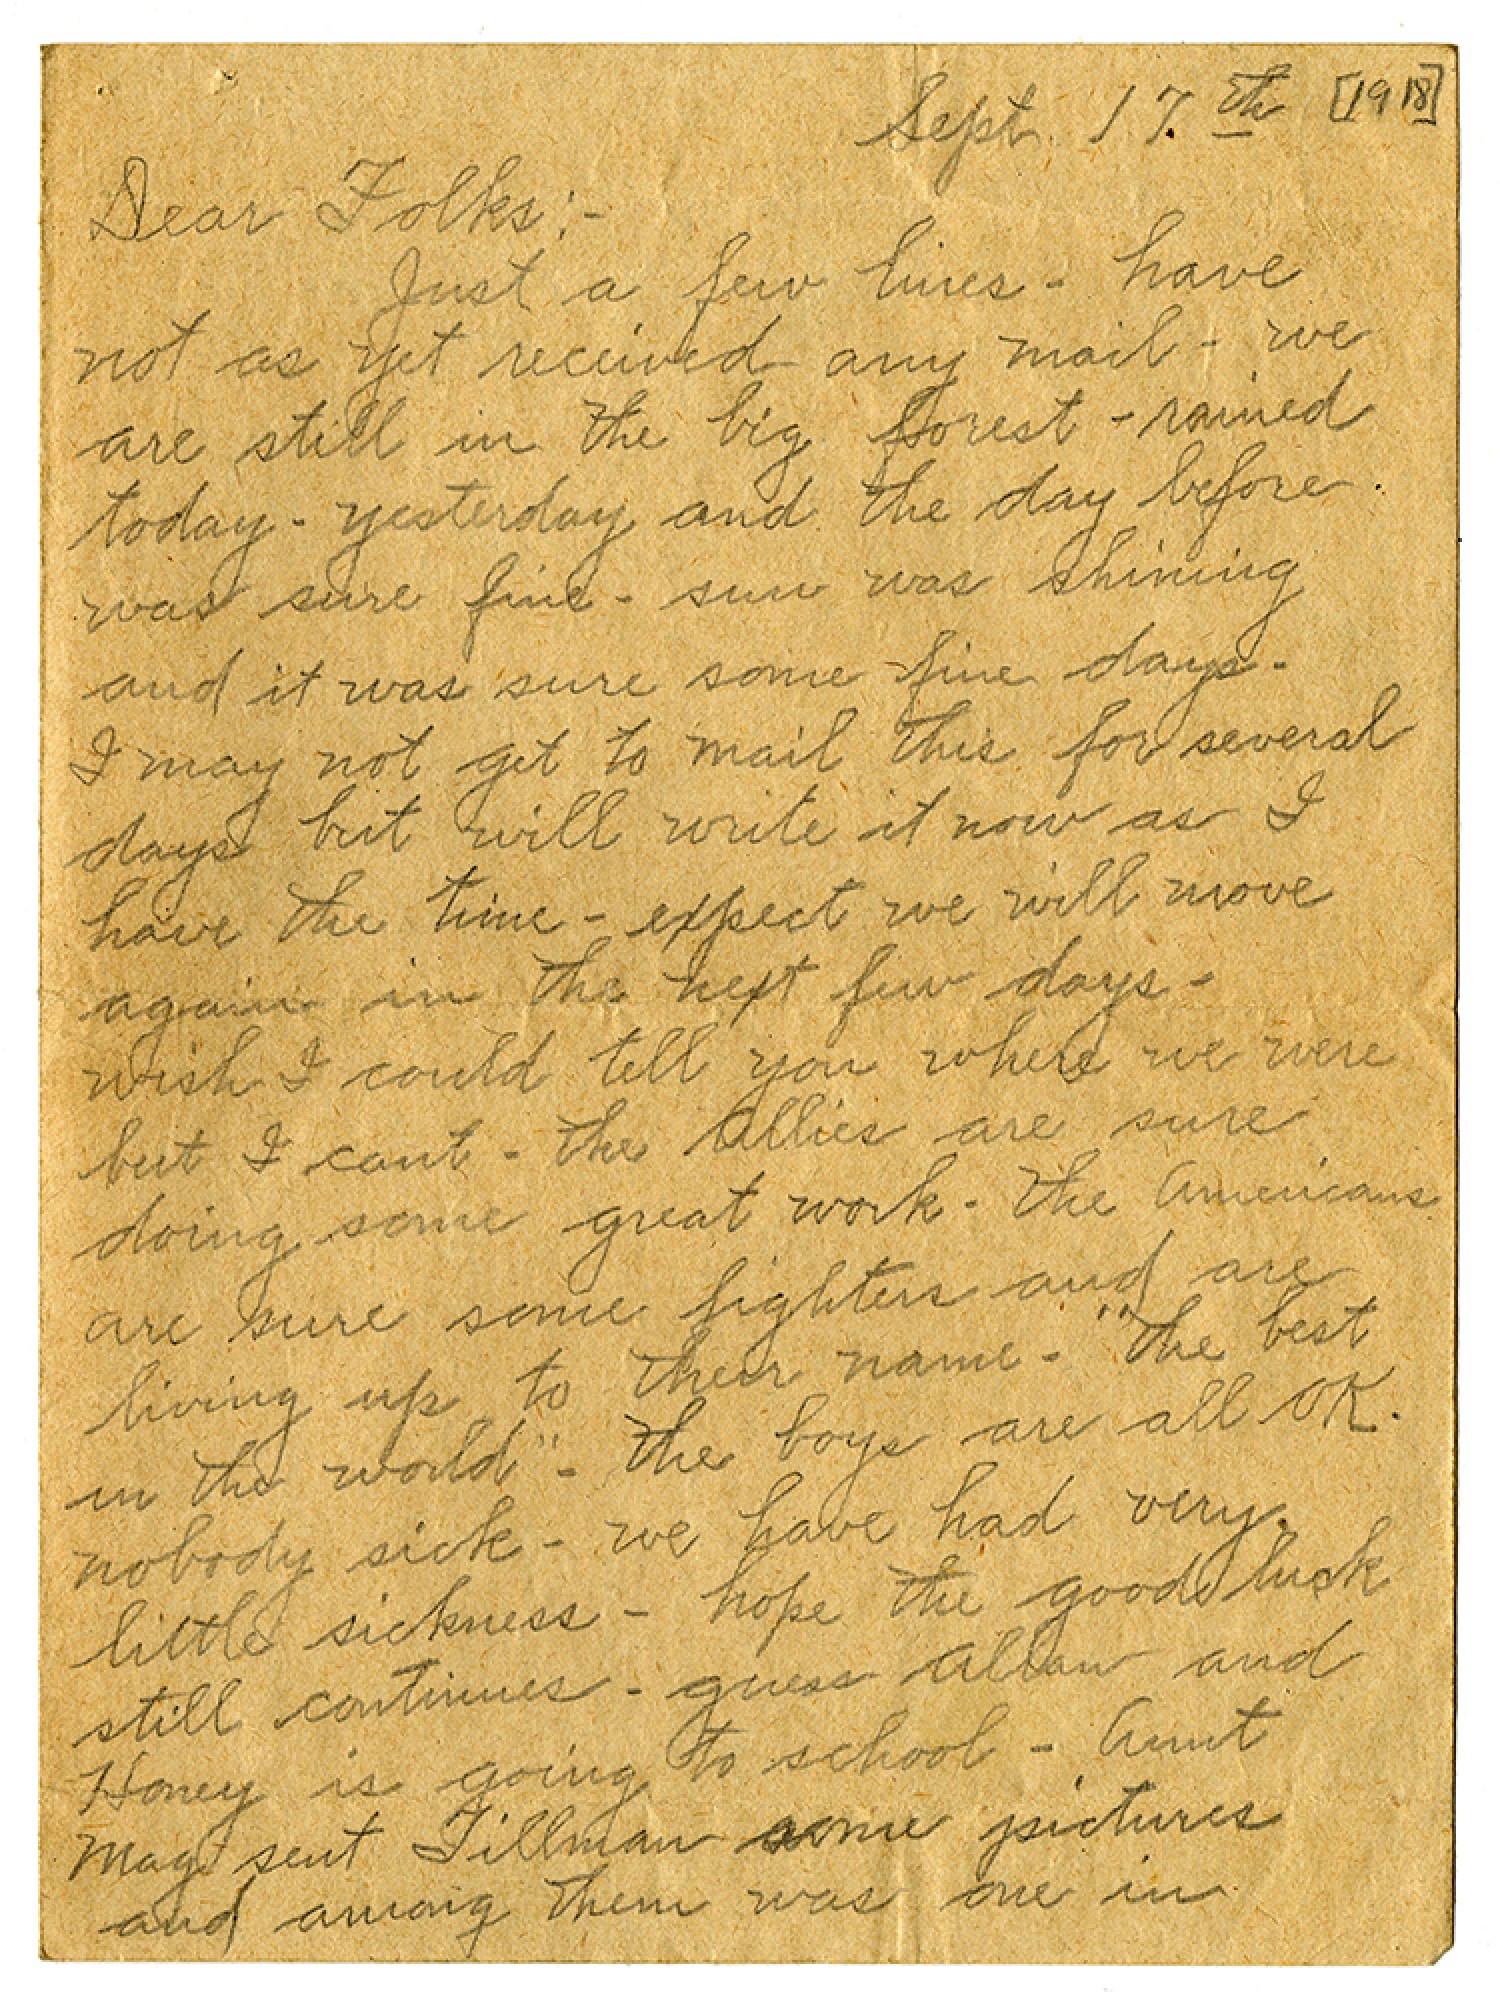 Sept. 17.th [1918]
Dear Folks:-
Just a few lines - have
not as yet received any mail - we
are still in the big forest - rained
today - yesterday and the day before
was sure fine - sun was shining
and it was sure some fine days -
I may not get to mail this for several
days but will write it now as I
have the time - expect we will move
again in the next few days -
wish I could tell you where we were
but I cant - the Allies are sure
doing some great work - the Americans
are sure some fighters and are
living up to their name - "the best
in the world" - the boys are all OK.
nobody sick - we have had very
little sickness - hope the good luck
still continues - guess Allan and
Honey is going to school - Aunt
Mag sent Tillman some pictures
and among them was one in